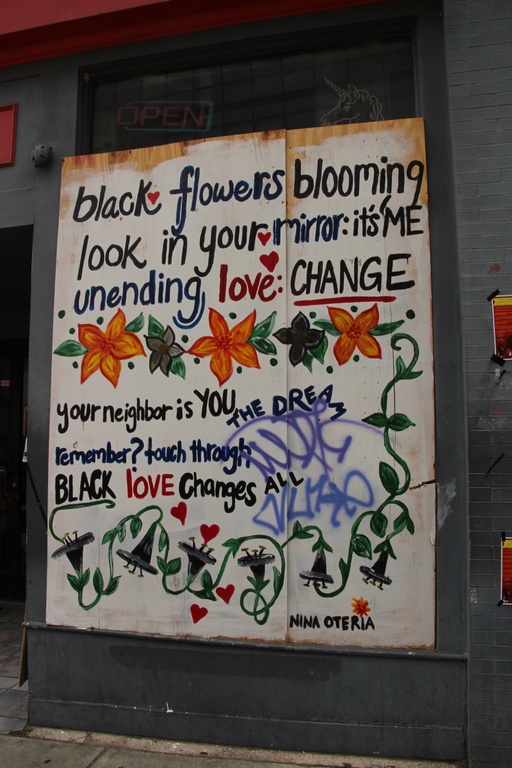 OPEN
black flowers blooming
look in your mirror: it's ME
unending love: CHANGE
your neighbor is YOU
THE DREAM
remember? touch through
BLACK love changes ALL
NINA OTERIA